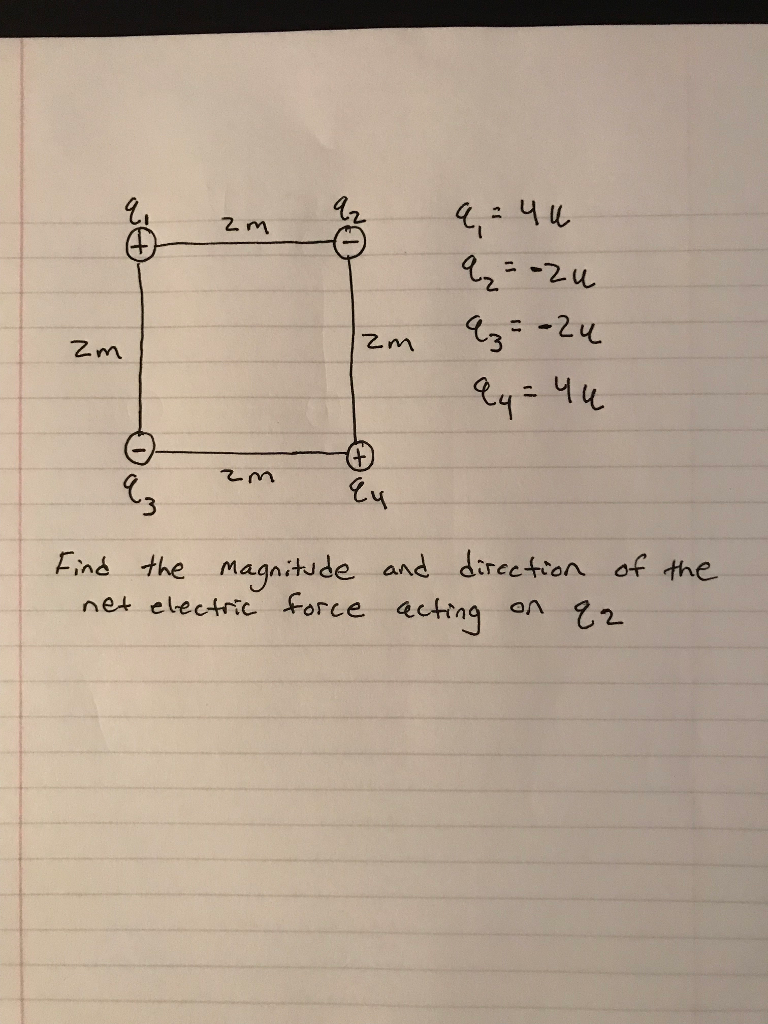 q₁ 2m q₂
+ −
2m 2m
− +
q₃ 2m q₄
q₁ = 4u
q₂ = -2u
q₃ = -2u
q₄ = 4u
Find the magnitude and direction of the
net electric force acting on q2